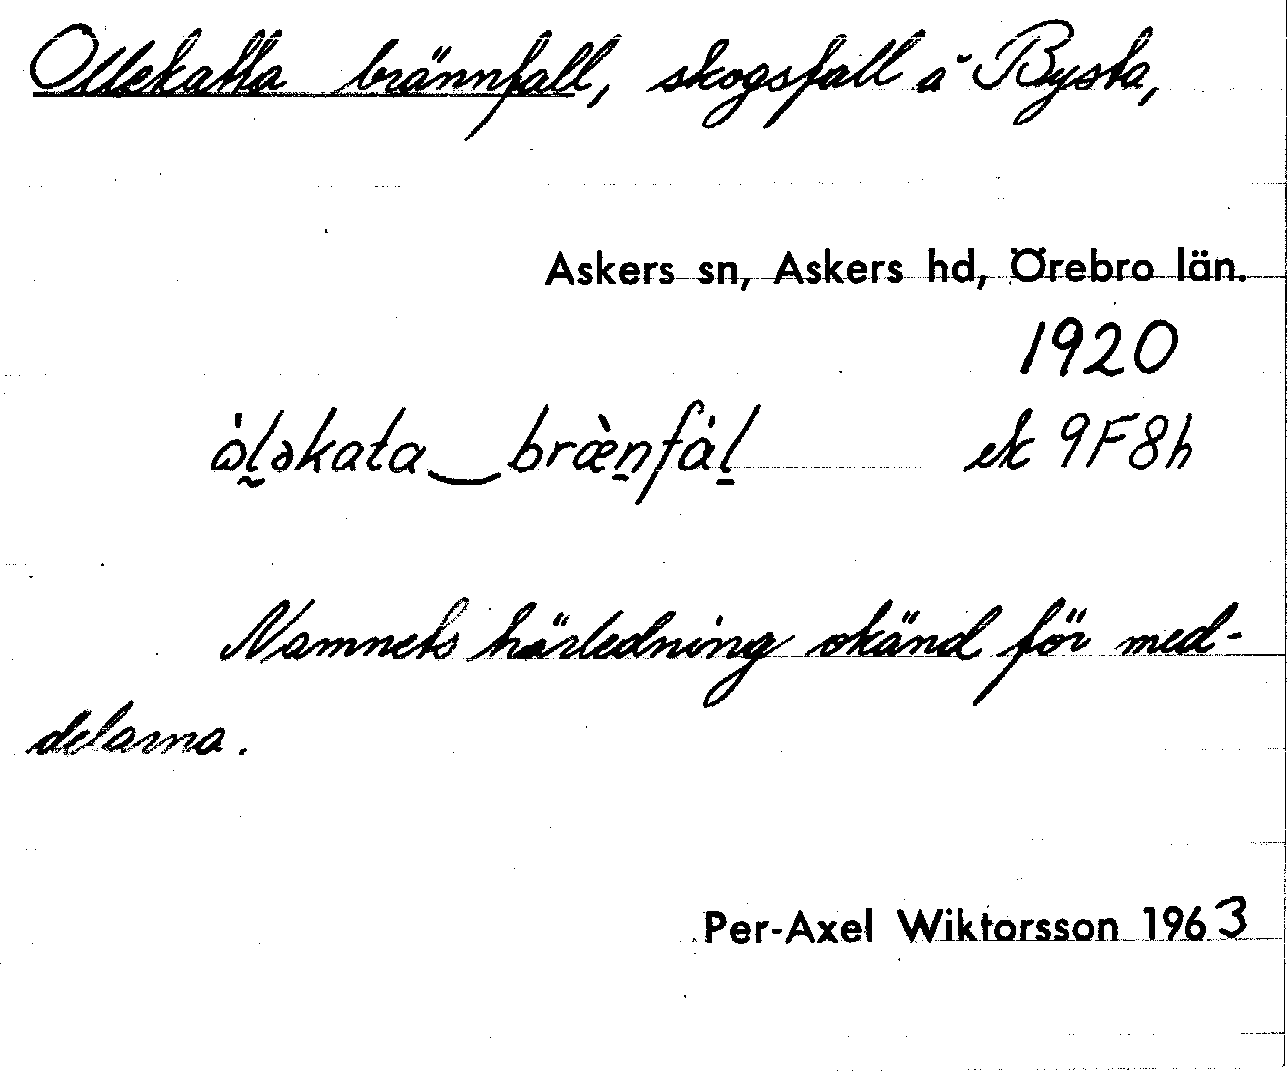 Ollekatta brännfall, skogsfall å Bysta,
Askers sn, Askers hd, Örebro län.
1920
ὰl̰əkata‿bræ̀n̲fál̲ ek 9F8h
Namnets härledning okänd för med-
delarna.
Per-Axel Wiktorsson 1963